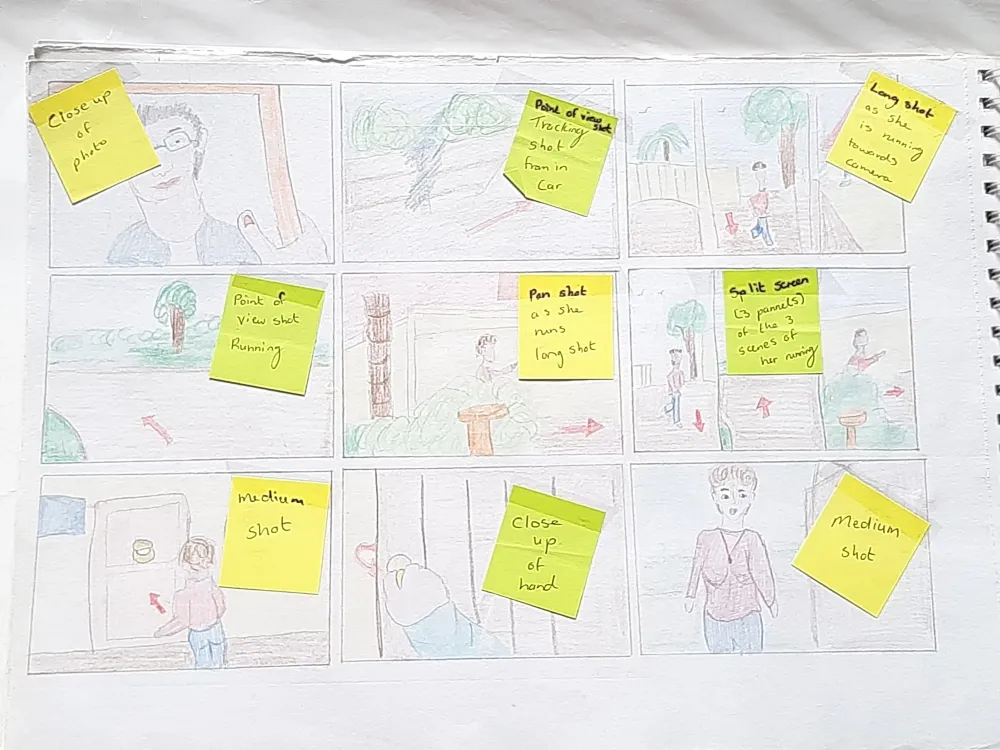 Close up
of
photo
Point of view
shot
Tracking
shot
from in
Car
Long shot
as she
is running
towards
camera
Point of
view shot
Running
Pan shot
as she
runs
long shot
Split screen
(3 pannels)
of the 3
scenes of
her running
medium
shot
Close
up
of
hand
Medium
shot